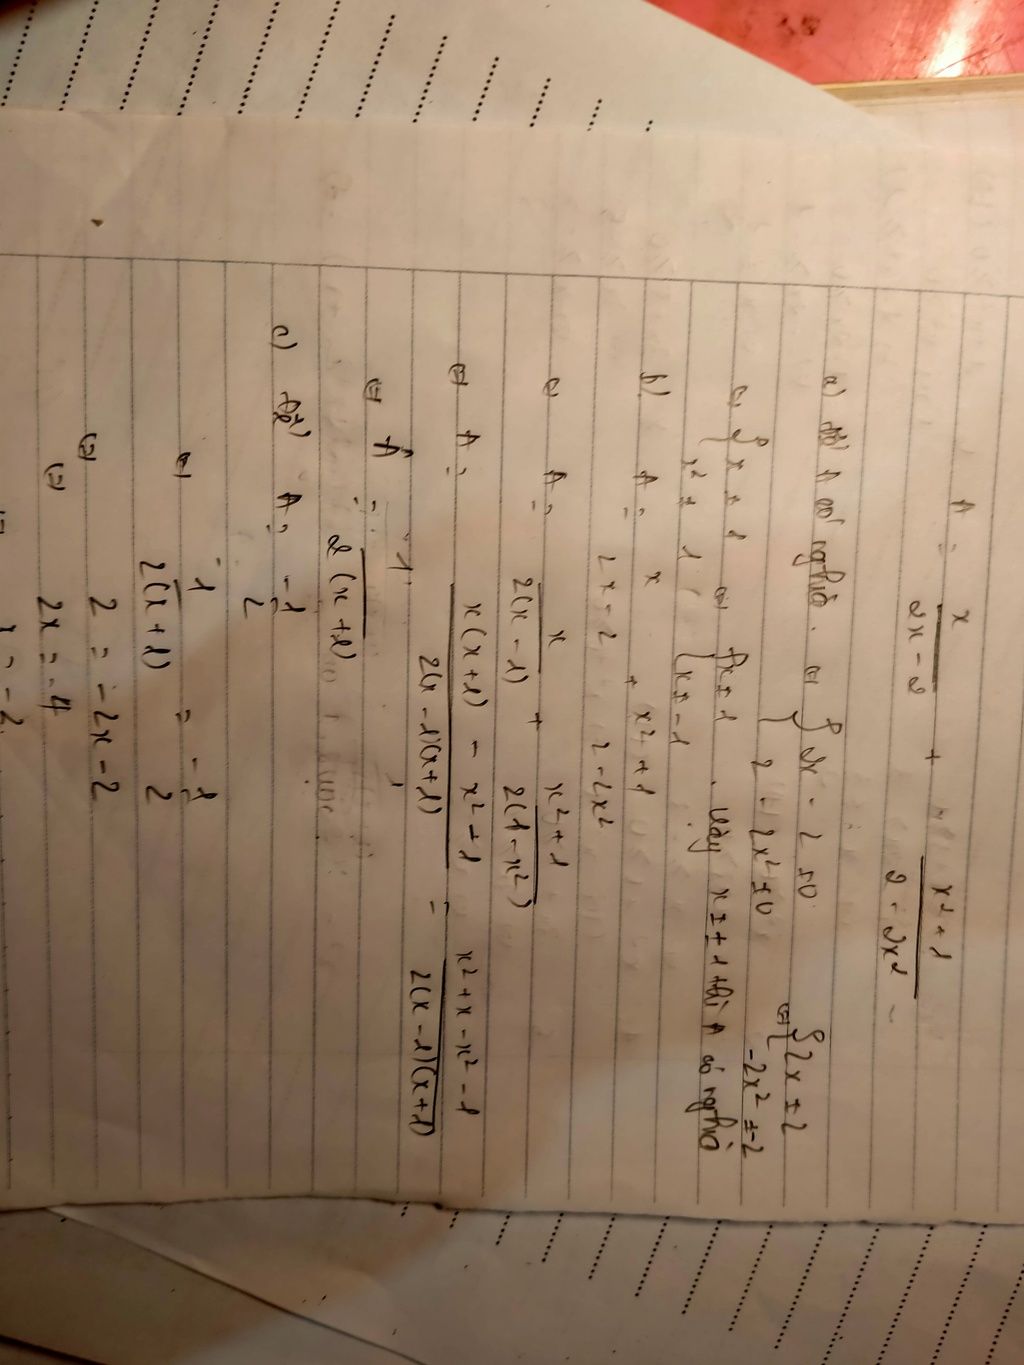 A = x/(2x - 2) + (x² + 1)/(2 - 2x²)
a) Để A có nghĩa. ⇔ { 2x - 2 ≠ 0 ; 2 - 2x² ≠ 0 ⇔ { 2x ≠ 2 ; -2x² ≠ -2
⇔ { x ≠ 1 ; x² ≠ 1 ⇔ { x ≠ 1 ; x ≠ -1 . Vậy x ≠ ± 1 thì A có nghĩa
b) A = x/(2x - 2) + (x² + 1)/(2 - 2x²)
⇔ A = x/(2(x - 1)) + (x² + 1)/(2(1 - x²))
⇔ A = (x(x + 1) - x² - 1)/(2(x - 1)(x + 1)) = (x² + x - x² - 1)/(2(x - 1)(x + 1))
⇔ A = 1/(2(x + 1))
c) Để A = -1/2
⇔ 1/(2(x + 1)) = -1/2
⇔ 2 = -2x - 2
⇔ 2x = -4
⇔ x = -2